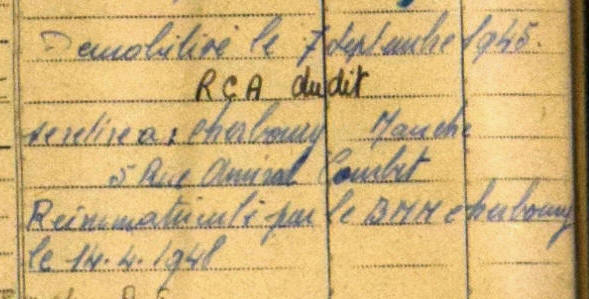 Demobilisé le 7 septembre 1945.
RCA dudit
se retire a: Cherbourg Manche
5 Rue Amiral Courbet
Reimmatriculé par le BMM Cherbourg
le 14.4.1948